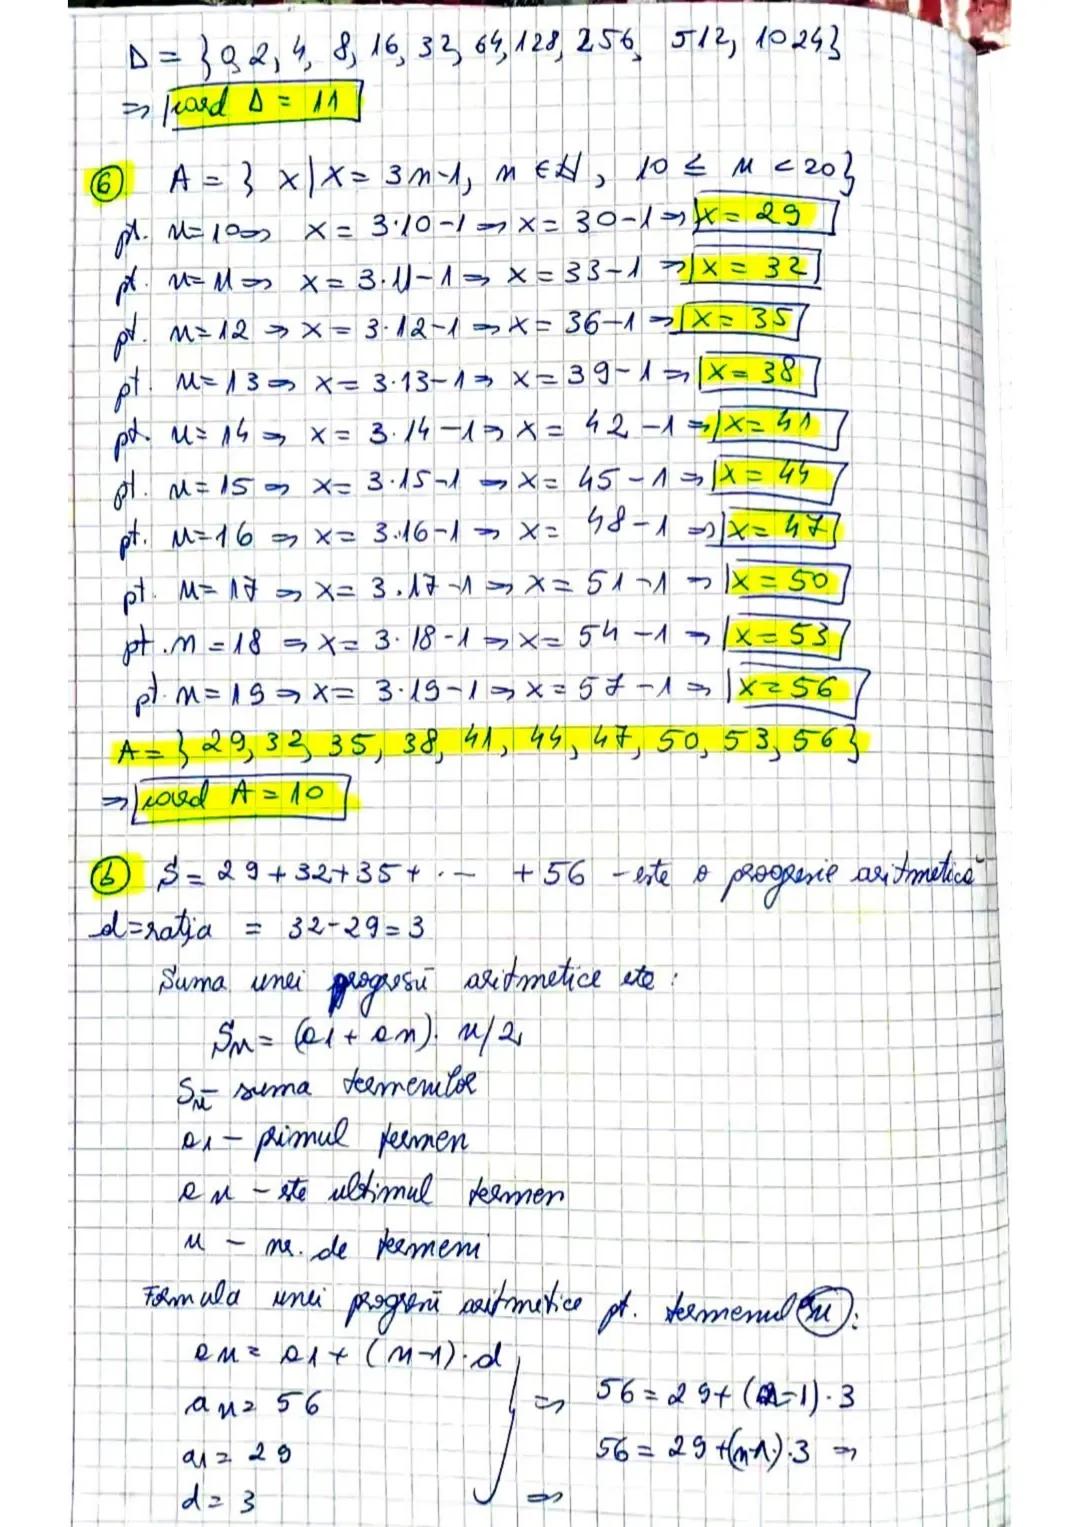 D = {0, 2, 4, 8, 16, 32, 64, 128, 256, 512, 1024}
⇒ card D = 11
6 A = { x | x = 3n-1, n ∈ N, 10 ≤ n < 20}
pt. n=10 ⇒ x = 3·10-1 ⇒ x = 30-1 ⇒ x = 29
pt. n=11 ⇒ x = 3·11-1 ⇒ x = 33-1 ⇒ x = 32
pt. n=12 ⇒ x = 3·12-1 ⇒ x = 36-1 ⇒ x = 35
pt. n=13 ⇒ x = 3·13-1 ⇒ x = 39-1 ⇒ x = 38
pt. n=14 ⇒ x = 3·14-1 ⇒ x = 42-1 ⇒ x = 41
pt. n=15 ⇒ x = 3·15-1 ⇒ x = 45-1 ⇒ x = 44
pt. n=16 ⇒ x = 3·16-1 ⇒ x = 48-1 ⇒ x = 47
pt. n=17 ⇒ x = 3·17-1 ⇒ x = 51-1 ⇒ x = 50
pt. n=18 ⇒ x = 3·18-1 ⇒ x = 54-1 ⇒ x = 53
pt. n=19 ⇒ x = 3·19-1 ⇒ x = 57-1 ⇒ x = 56
A = { 29, 32, 35, 38, 41, 44, 47, 50, 53, 56}
⇒ card A = 10
b S = 29+32+35+... +56 - este o progresie aritmetică
d=rația = 32-29=3
Suma unei progresii aritmetice este:
Sn = (a1 + an)·n/2,
Sn - suma termenilor
a1 - primul termen
an - este ultimul termen
n - nr. de termeni
Formula unei progresii aritmetice pt. termenul an:
an = a1 + (n-1)·d
an = 56 ⇒ 56 = 29 + (n-1)·3
a1 = 29 56 = 29+(n-1)·3 ⇒
d = 3 ⇒